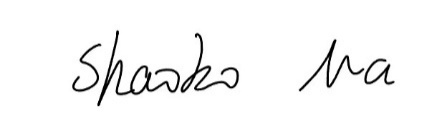 Shaoko Ma